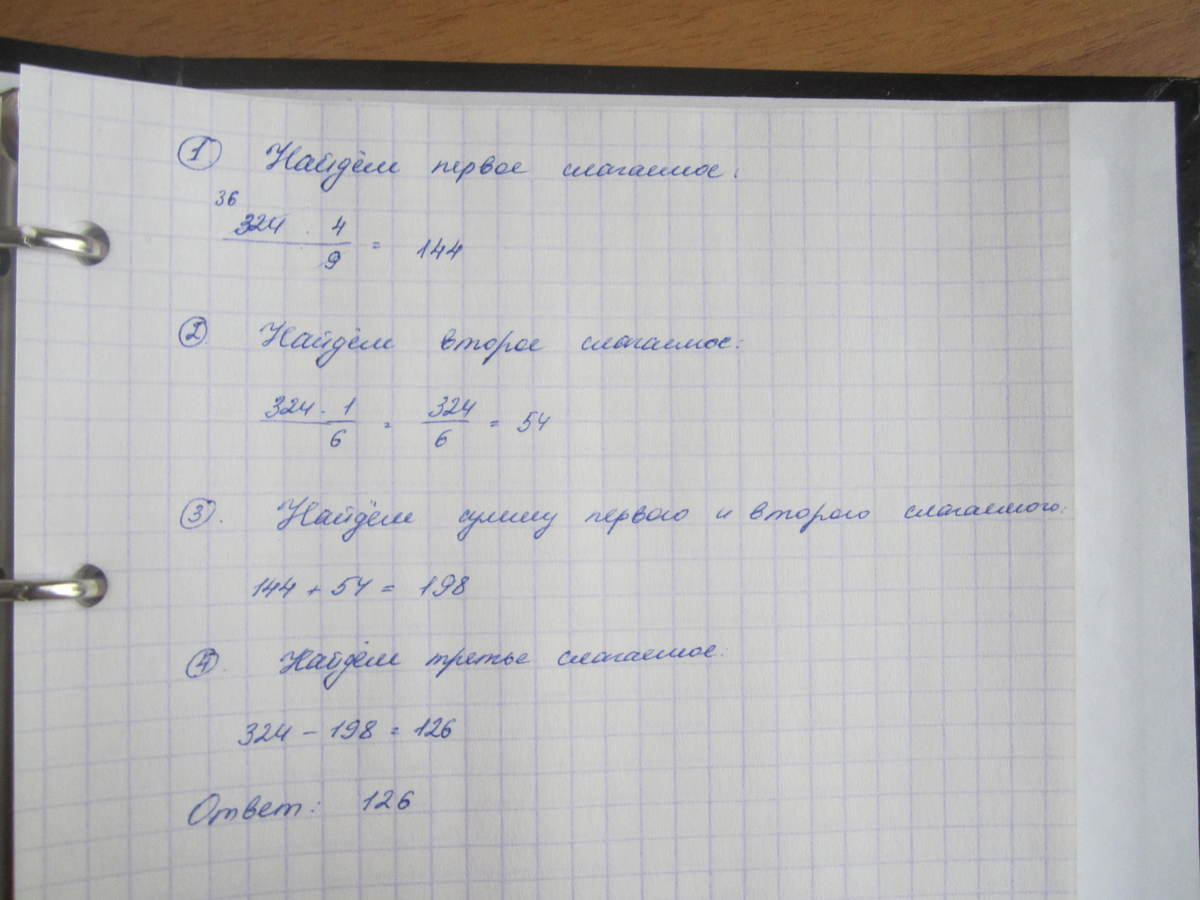 ① Найдём первое слагаемое:
36
324 · 4
9
= 144
② Найдём второе слагаемое:
324 · 1
6
= 324
6
= 54
③. Найдём сумму первого и второго слагаемого:
144 + 54 = 198
④. Найдём третье слагаемое:
324 - 198 = 126
Ответ: 126